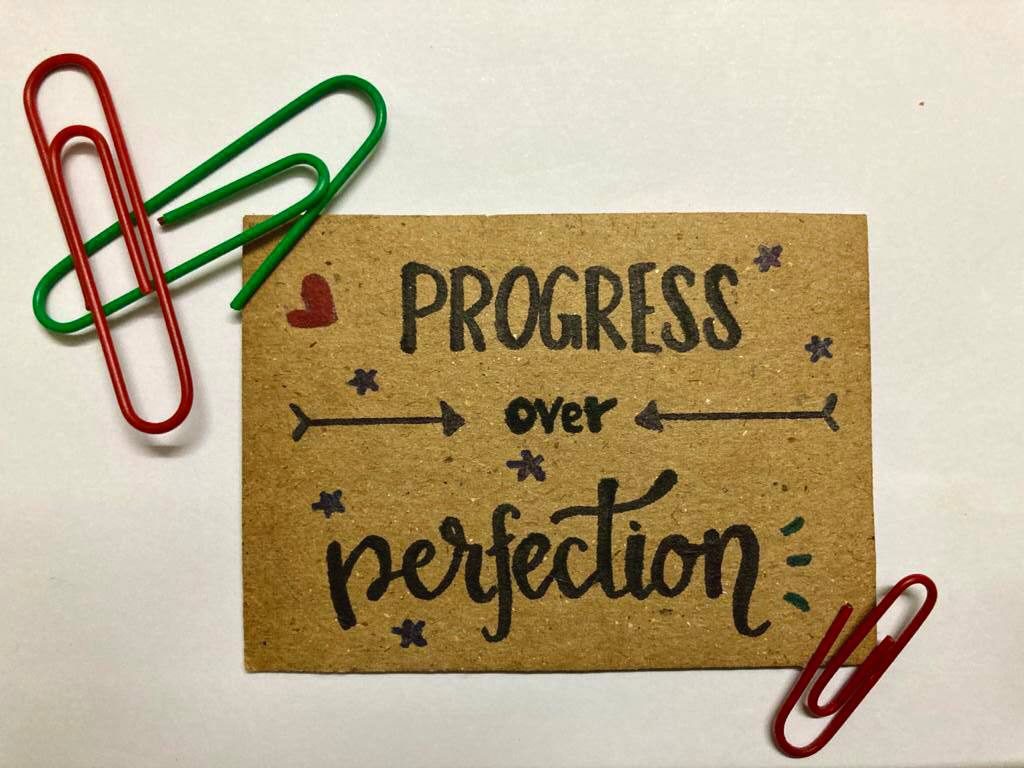 PROGRESS
over
perfection